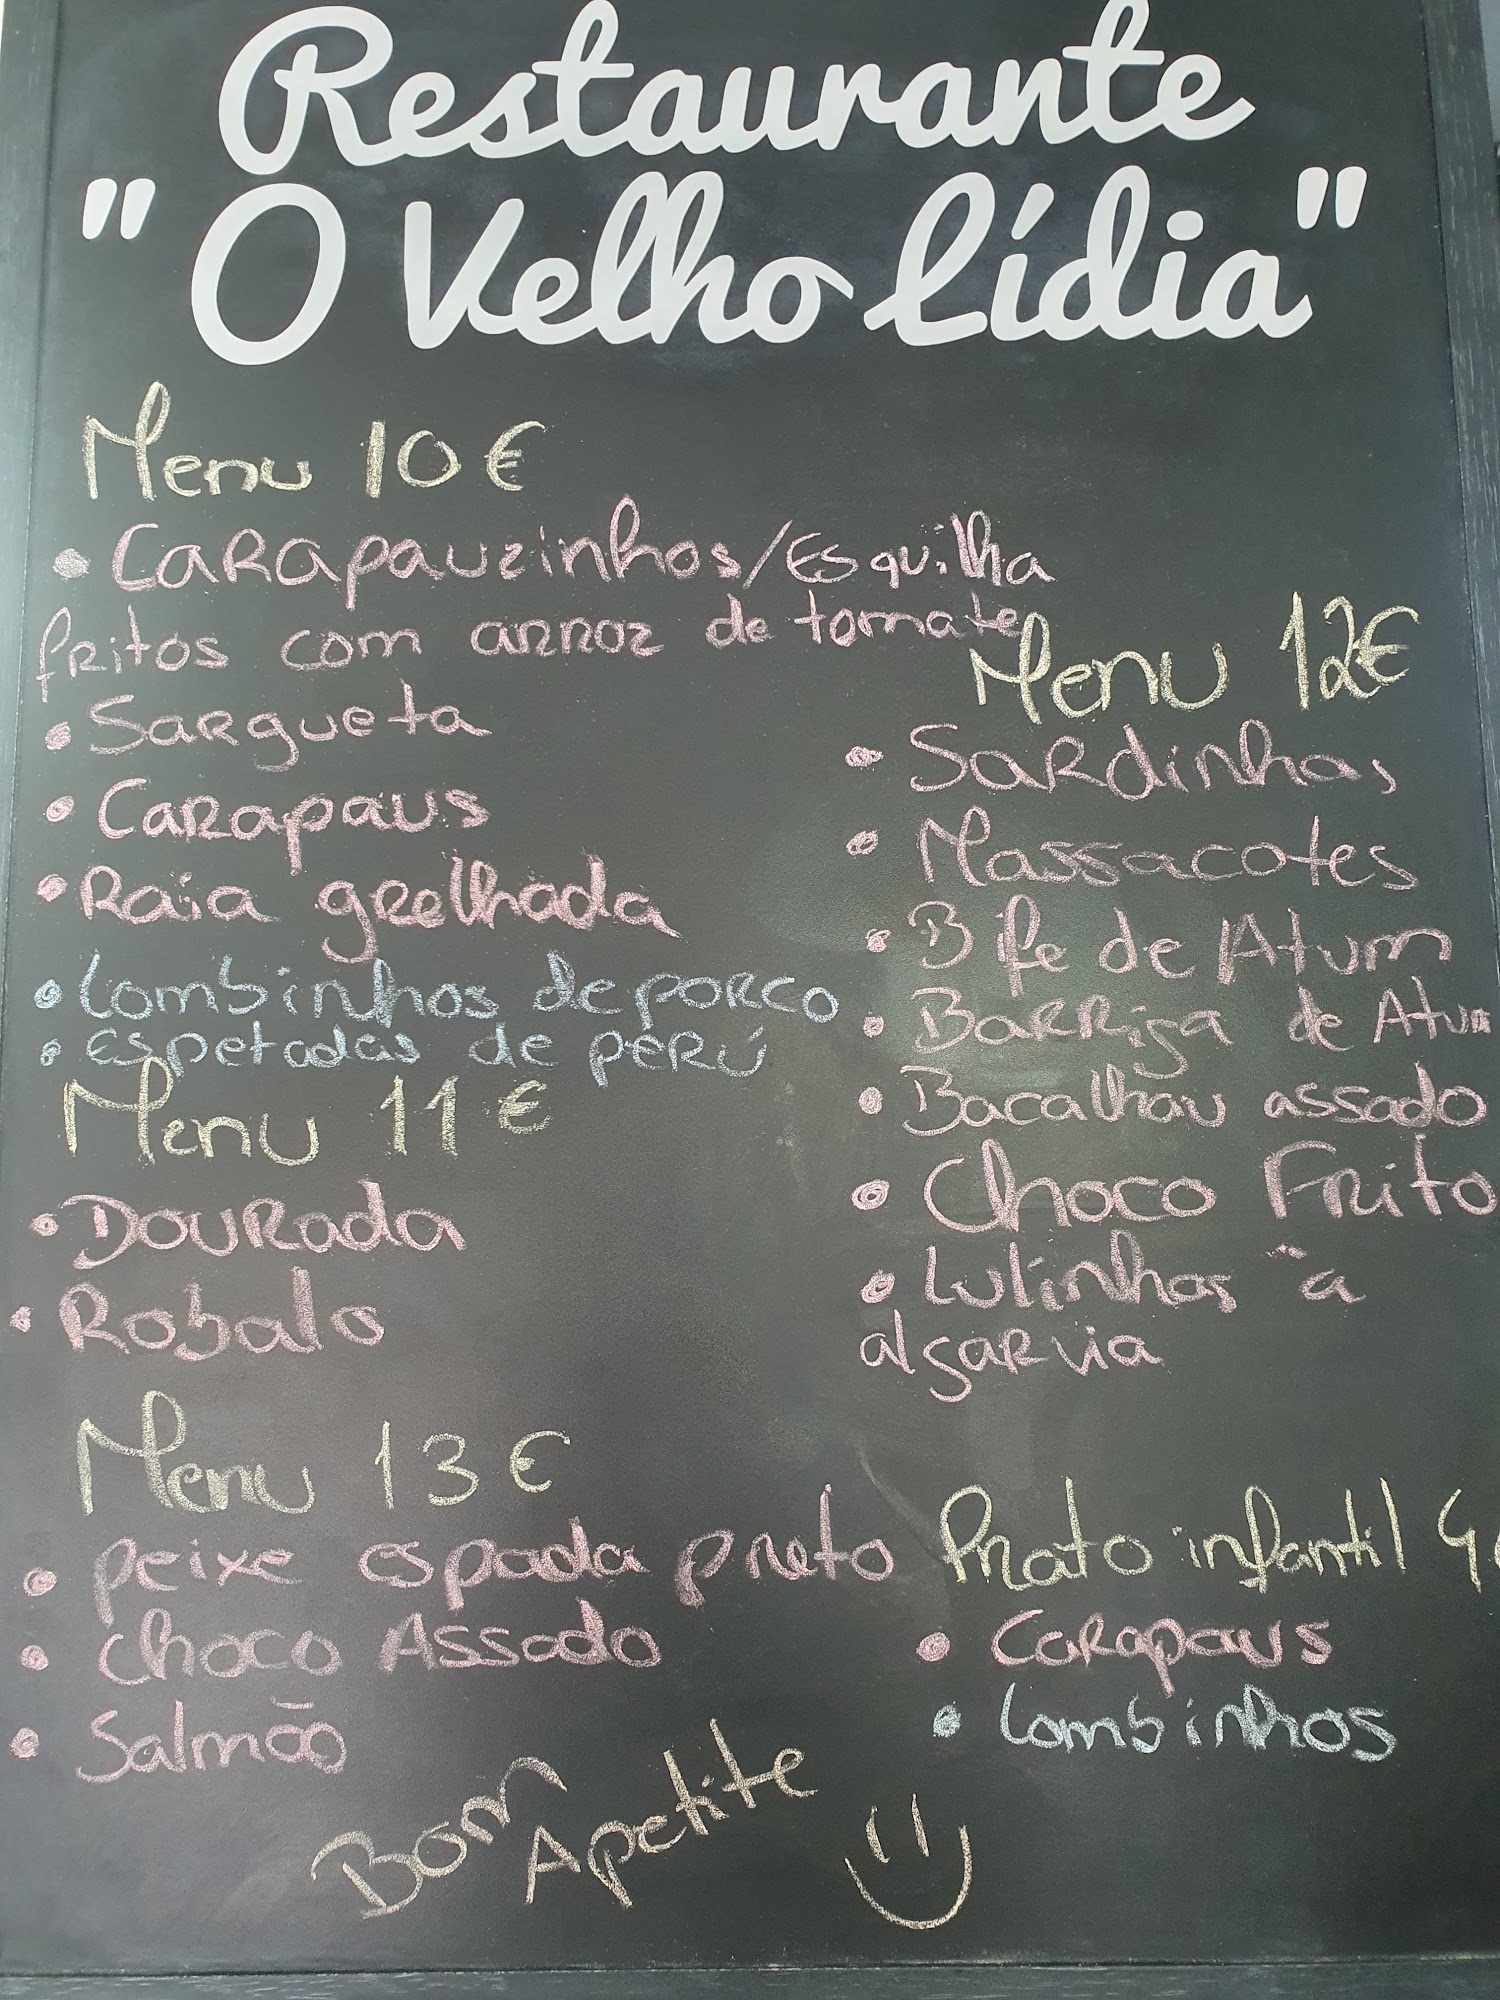 Restaurante
"O Velho Lídia"
Menu 10€
• Carapauzinhos/Esquilha
fritos com arroz de tomate
• Sargueta
• Carapaus
• Raia grelhada
• Lombinhos de porco
• Espetadas de perú
Menu 11€
• Dourada
• Robalo
Menu 13€
• peixe espada preto
• choco Assado
• Salmão
Menu 12€
• Sardinhas
• Massacotes
• Bife de Atum
• Barriga de Atum
• Bacalhau assado
• Choco Frito
• Lulinhas à
algarvia
Prato infantil
• Carapaus
• Lombinhos
Bom
Apetite